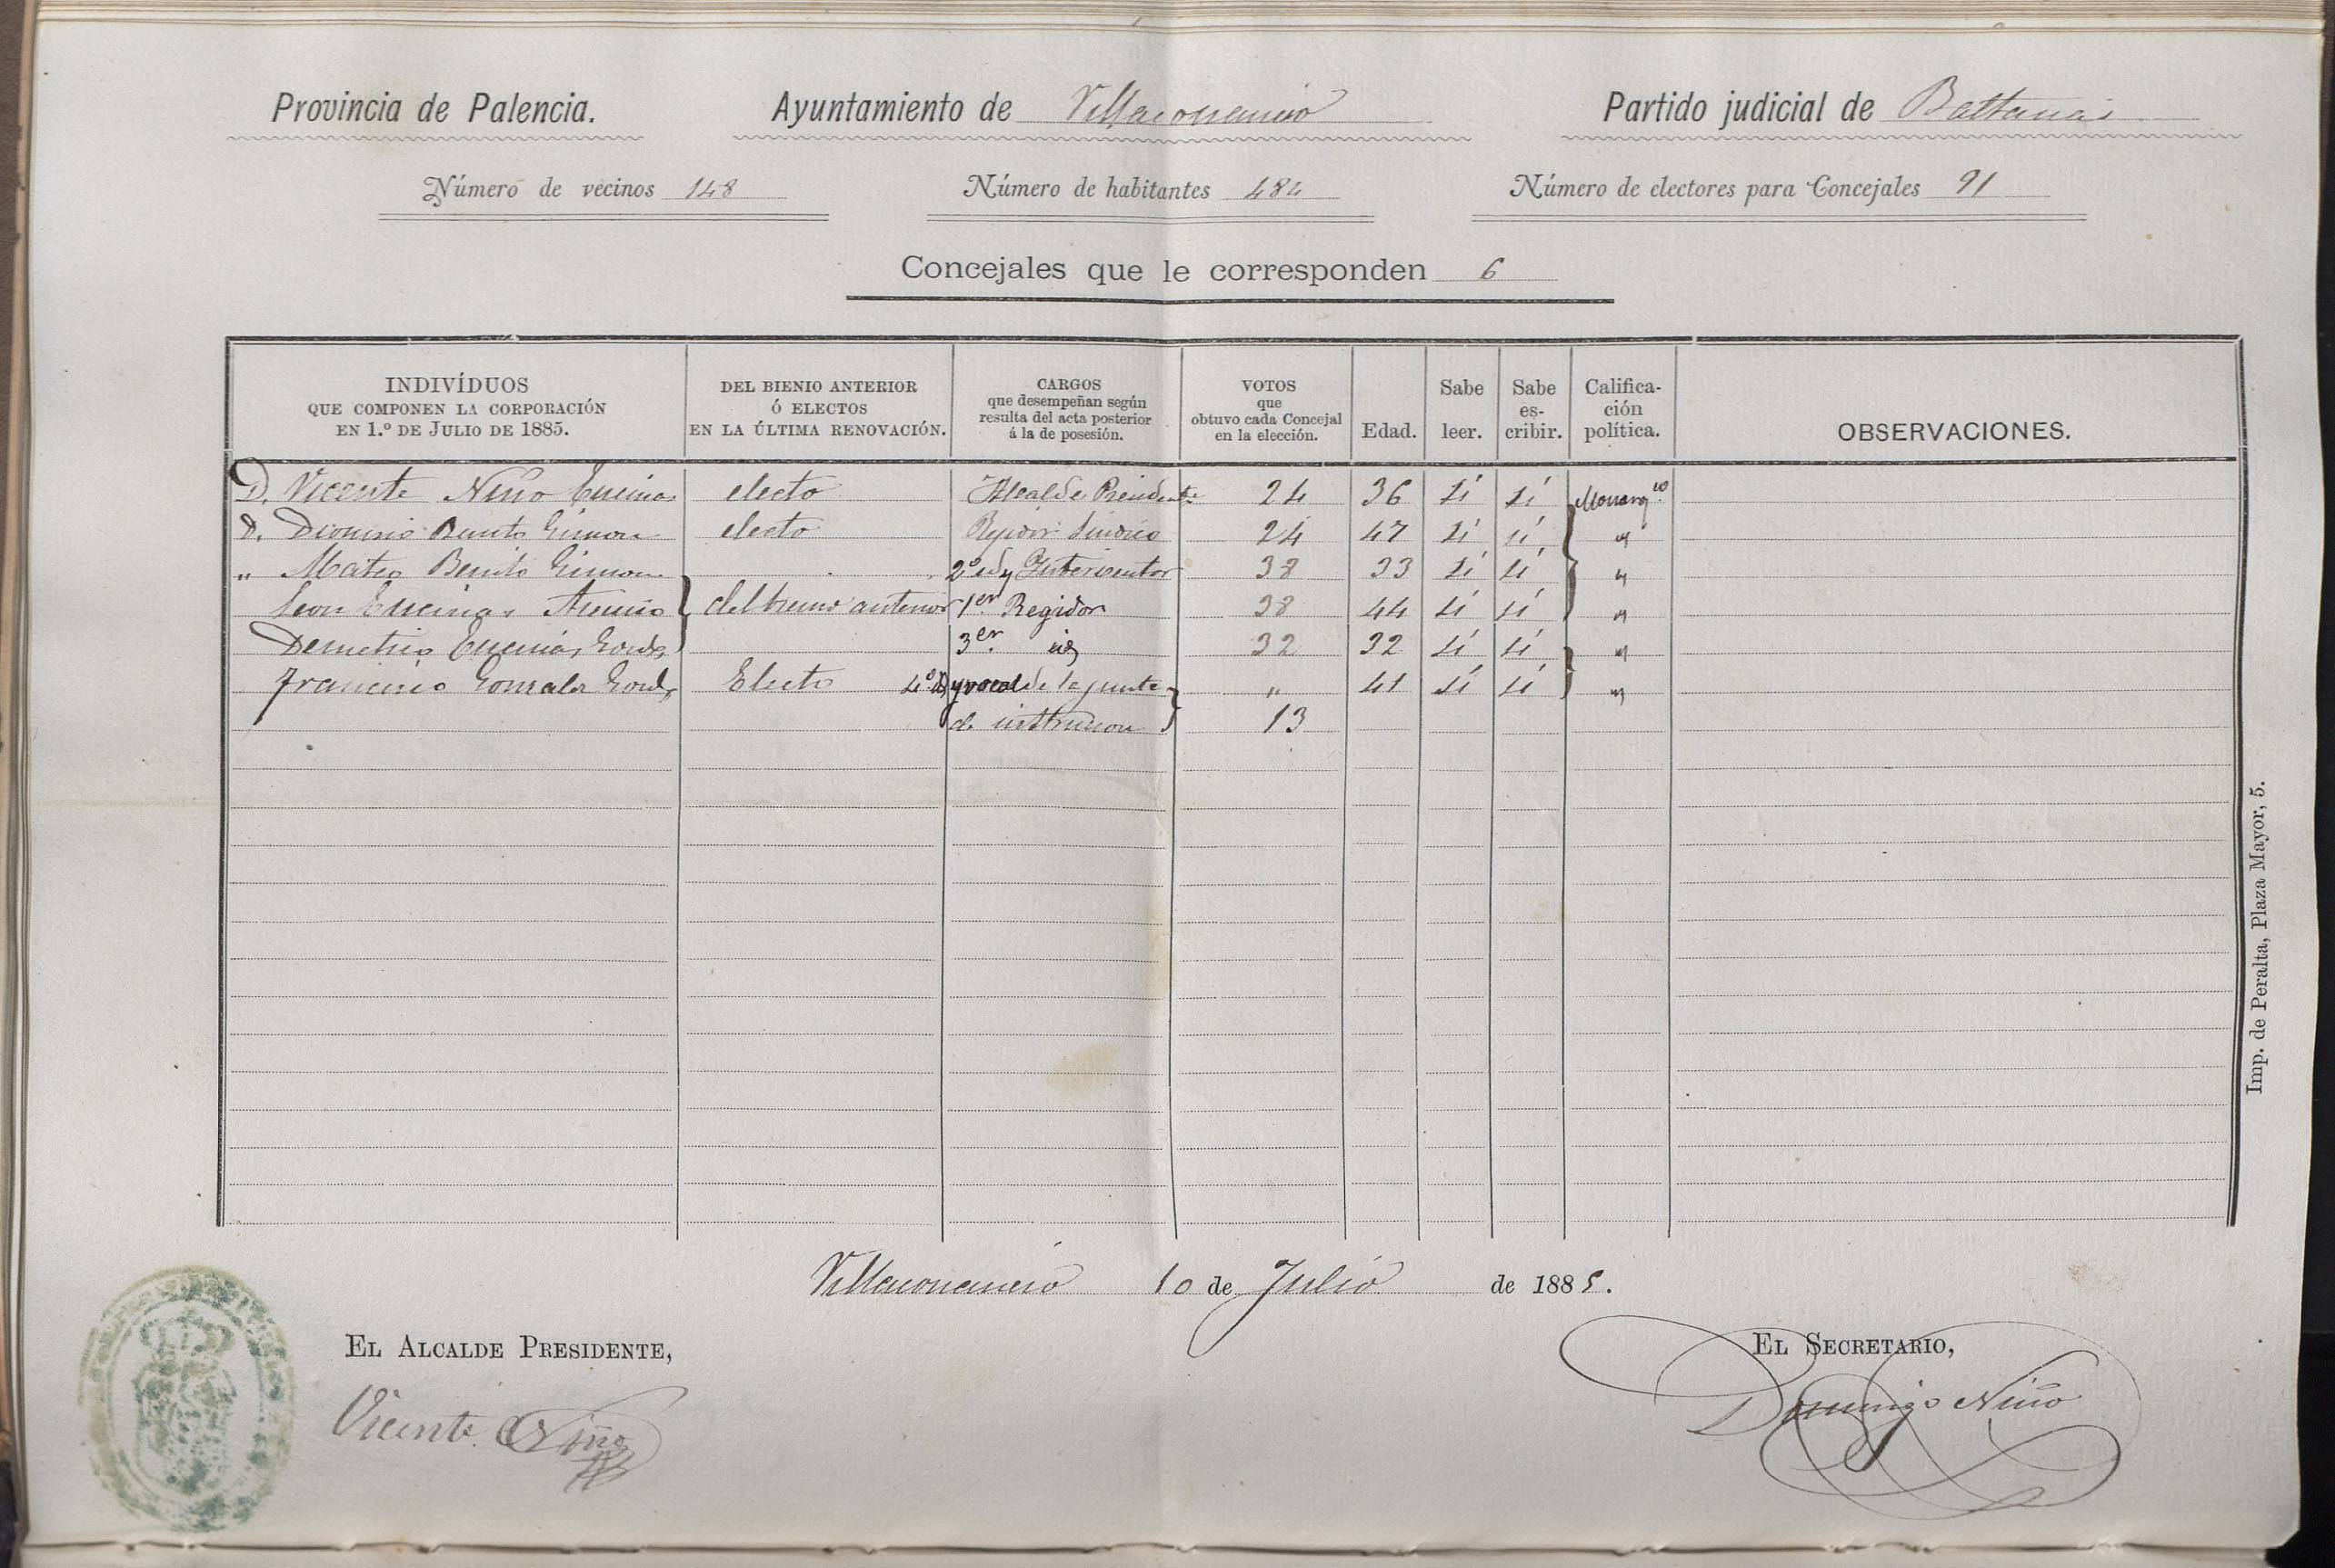 Provincia de Palencia. Ayuntamiento de Villaconancio Partido judicial de Baltanás
Número de vecinos 148 Número de habitantes 484 Número de electores para Concejales 91
Concejales que le corresponden 6
INDIVÍDUOS QUE COMPONEN LA CORPORACIÓN EN 1.º DE JULIO DE 1885. DEL BIENIO ANTERIOR Ó ELECTOS EN LA ÚLTIMA RENOVACIÓN. CARGOS que desempeñan según resulta del acta posterior á la de posesión. VOTOS que obtuvo cada Concejal en la elección. Edad. Sabe leer. Sabe es-cribir. Califica-ción política. OBSERVACIONES.
D. Vicente Niño Encinas electo Alcalde Presidente 24 36 sí sí Monarq.co
D. Dionisio Benito Simon electo Regidor Sindico 24 47 sí sí "
" Mateo Benito Simon 2º id y Interventor 38 33 sí sí "
Leon Encinas del bienio anterior 1er Regidor 38 44 sí sí "
Demetrio Encinas 3er. id 32 32 sí sí "
Francisco Gonzalez Electo 4º id y vocal de la junta " 41 sí sí "
de instrucion 13
Villaconancio 10 de Julio de 1885.
EL ALCALDE PRESIDENTE, EL SECRETARIO,
Vicente Niño Domingo Niño
Imp. de Peralta, Plaza Mayor, 5.